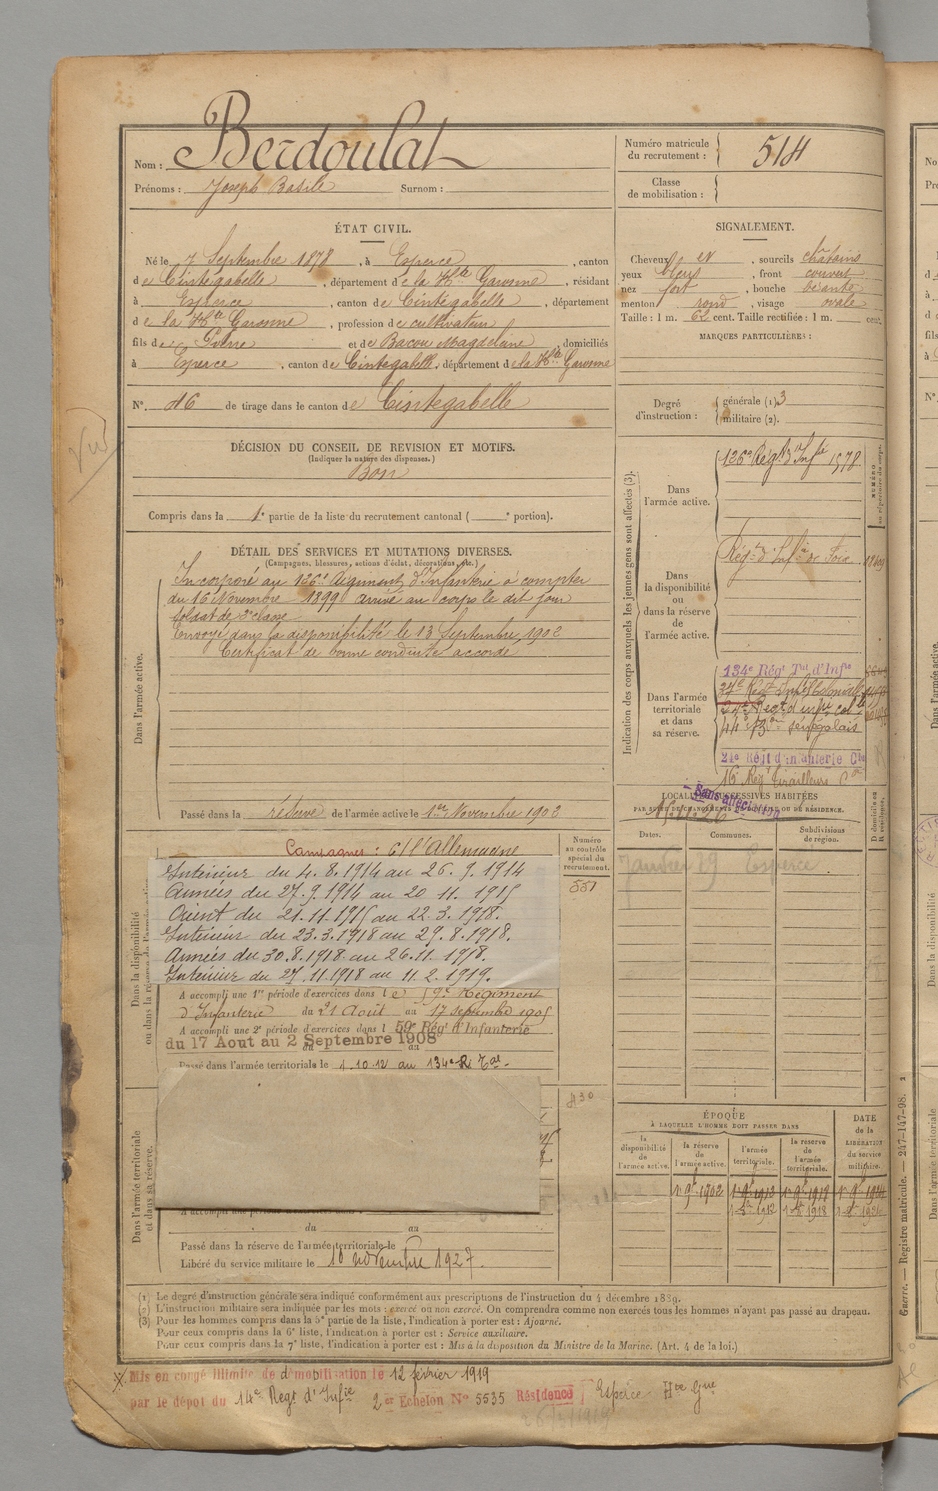 Nom : Berdoulat
Prénoms : Joseph Basile Surnom :
Numéro matricule du recrutement : 514
Classe de mobilisation :
ÉTAT CIVIL.
Né le 7 Septembre 1878, à Esperce, canton
de Cintegabelle, département de la Hte Garonne, résidant
à Esperce, canton de Cintegabelle, département
de la Hte Garonne, profession de cultivateur
fils de et de Bacou Magdelaine, domiciliés
à Esperce, canton de Cintegabelle, département de la Hte Garonne
N° 46 de tirage dans le canton de Cintegabelle
SIGNALEMENT.
Cheveux et sourcils châtains
yeux bleus, front couvert
nez fort, bouche béante
menton rond, visage ovale
Taille : 1 m. 62 cent. Taille rectifiée : 1 m. cent.
MARQUES PARTICULIÈRES :
Degré d'instruction : générale (1) 3
militaire (2).
Vu
DÉCISION DU CONSEIL DE REVISION ET MOTIFS.
(Indiquer la nature des dispenses.)
Bon
Compris dans la 1e partie de la liste du recrutement cantonal ( e portion).
DÉTAIL DES SERVICES ET MUTATIONS DIVERSES.
(Campagnes, blessures, actions d'éclat, décorations, etc.)
Dans l'armée active.
Incorporé au 126e Régiment d'Infanterie à compter
du 16 Novembre 1899 arrivé au corps le dit jour
soldat de 2e classe
Envoyé dans la disponibilité le 13 Septembre 1902
Certificat de bonne conduite accordé
Passé dans la réserve de l'armée active le 1er Novembre 1902
Indication des corps auxquels les jeunes gens sont affectés (3).
NUMÉRO au répertoire du corps.
Dans l'armée active.
126e Régt d'Infie 1578
Dans la disponibilité ou dans la réserve de l'armée active.
Régt d'Infie de Foix
Dans l'armée territoriale et dans sa réserve.
134e Régt Tal d'Infie
24e Régt Inf Colonial
44e Bon sénégalais
24e Régt d'infanterie Cle
16 Régt Tirailleurs
Sans affectation
LOCALITÉS SUCCESSIVES HABITÉES
PAR SUITE DE CHANGEMENTS DE DOMICILE OU DE RÉSIDENCE.
Dates. Communes. Subdivisions de région. D domicile ou R résidence.
Janvier 19 Esperce
Dans la disponibilité ou dans la réserve de l'armée active.
Numéro au contrôle spécial du recrutement.
551
Campagnes : c/ l'Allemagne
Intérieur du 4.8.1914 au 26.9.1914
Armées du 27.9.1914 au 20 11.1915
Orient du 21.11.1915 au 22.3.1918.
Intérieur du 23.3.1918 au 29.8.1918.
Armées du 30.8.1918 au 26.11.1918.
Intérieur du 27.11.1918 au 11.2.1919.
A accompli une 1re période d'exercices dans le 59e Régiment
d'Infanterie du 21 Août au 17 septembre 1905
A accompli une 2e période d'exercices dans l 59e Régt d'Infanterie
du 17 Aout au 2 Septembre 1908
Passé dans l'armée territoriale le 1.10.12 au 134e R. Tal.
Dans l'armée territoriale et dans sa réserve.
430
du au
Passé dans la réserve de l'armée territoriale le
Libéré du service militaire le 10 novembre 1927.
ÉPOQUE
À LAQUELLE L'HOMME DOIT PASSER DANS
DATE de la LIBÉRATION du service militaire.
la disponibilité de l'armée active. la réserve de l'armée active. l'armée territoriale. la réserve de l'armée territoriale.
(1) Le degré d'instruction générale sera indiqué conformément aux prescriptions de l'instruction du 4 décembre 1889.
(2) L'instruction militaire sera indiquée par les mots : exercé ou non exercé. On comprendra comme non exercés tous les hommes n'ayant pas passé au drapeau.
(3) Pour les hommes compris dans la 5e partie de la liste, l'indication à porter est : Ajourné.
Pour ceux compris dans la 6e liste, l'indication à porter est : Service auxiliaire.
Pour ceux compris dans la 7e liste, l'indication à porter est : Mis à la disposition du Ministre de la Marine. (Art. 4 de la loi.)
Guerre. — Registre matricule. — 247-147-98.
Mis en congé illimité de démobilisation le 12 février 1919
par le dépot du 14e Régt d'Infie 2er Echelon N° 5535 Résidence Esperce Hte Gne